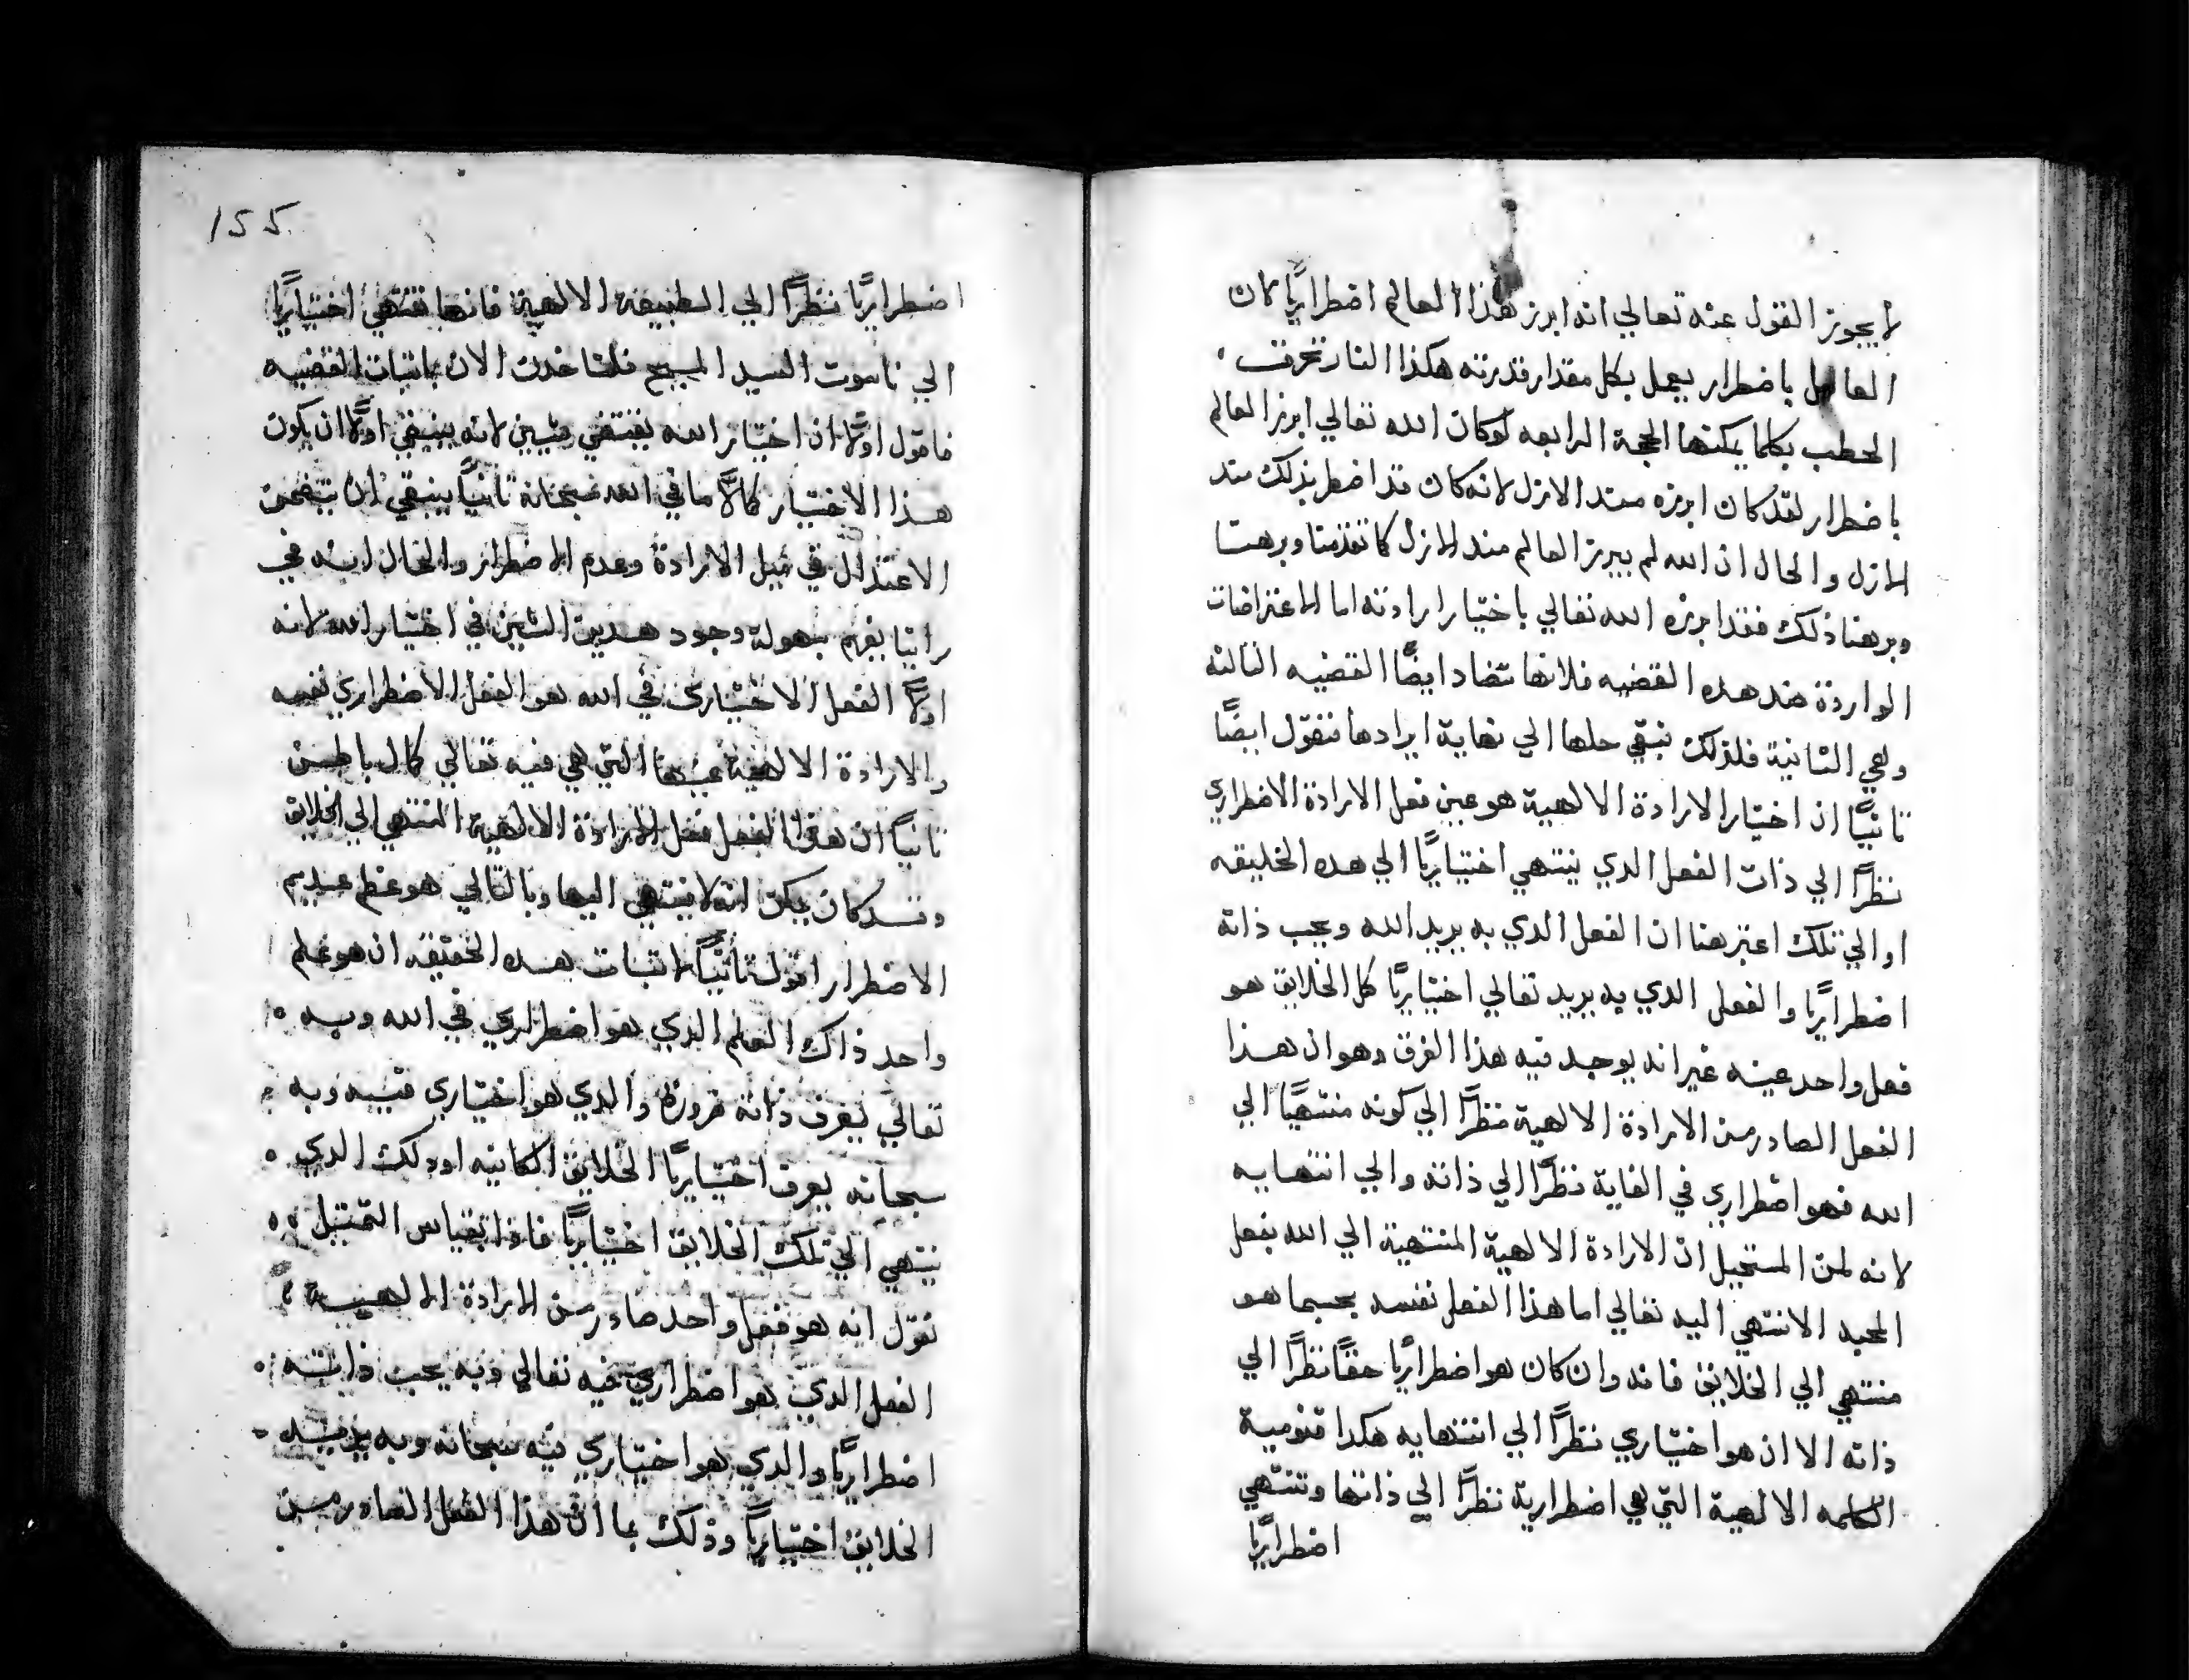 لا يجوز القول عنه تعالي انه ابرز هذا العالم اضطراريًا لان
العامل باضطرار يعمل بكل مقدار قدرته هكذا النار تحرق
الحطب بكلما يمكنها الحجة الرابعه لوكان الله تعالي ابرز العالم
باضطرار لقد كان ابرزه مند الازل لانه كان قد اضطر بذلك مند
الازل والحال ان الله لم يبرز العالم مند الازل كما تقدمنا وبرهنا
وبرهنا ذلك فقد ابرزه الله تعالي باختيار ارادته اما الاعتراضات
الواردة ضد هده القضيه فلانها تضاد ايضًا القضيه التالته
وهي الثانية فلذلك نبقي حلها الي نهاية ايرادها فنقول ايضًا
تانيًا ان اختيار الارادة الالهية هو عين فعل الارادة الاضطراري
نظرًا الي ذات الفعل الدي ينتهي اختياريًا الي هده الخليقه
او الي تلك اعتبر هنا ان الفعل الدي به يريد الله ويحب ذاته
اضطراريًا والفعل الدي به يريد تعالي اختياريًا كل الخلايق هو
فعل واحد عينه غير انه يوجد فيه هذا الفرق وهو ان هذا
الفعل الصادر من الارادة الالهية نظرًا الي كونه منتهيًا الي
الله فهو اضطراري في الغاية نظرًا الي ذاته والي انتهايه
لانه لمن المستحيل ان الارادة الالهية المنتهية الي الله بفعل
المحبه الا تنتهي اليه تعالي اما هذا الفعل نفسه بحسبما هو
منتهي الي الخلايق فانه وان كان هو اضطراريًا حقًا نظرًا الي
ذاته الا ان هو اختياري نظرًا الي انتهايه هكدا قنومية
الكلمه الالهية التي هي اضطرارية نظرًا الي ذاتها وتنتهي
اضطراريًا
155
اضطراريًا نظرًا الي الطبيعة الالهية فانها تنتهي اختياريًا
الي ناسوت السيد المسيح فلناخدن الان باتبات القضيه
فاقول اولًا ان اختيار الله يقتضي شيين لانه ينبغي اولًا ان يكون
هذا الاختيار كمالًا ما في الله سبحانة تانيًا ينبغي ان يتضمن
الاعتدال في ميل الارادة وعدم الاضطرار والحال انه في
راينا يفهم بسهولة وجود هدين الشيين في اختيار الله لانه
اولًا الفعل الاختياري في الله هو الفعل الاضطراري نفسه
والارادة الالهية عينها التي هي فيه تعالي كمال باطن
تانيًا ان هذا الفعل فعل الارادة الالهية المنتهي الي الخلايق
وقد كان يمكن انه لا ينتهي اليها وبالتالي هو عديم
الاضطرار اقول تانيًا لاتبات هده الحقيقه ان هو علم
واحد ذاك العلم الدي هو اضطراري في الله وبه
تعالي يعرف ذاته ضرورة والدي هو اختياري فيه وبه
سبحانه يعرف اختياريًا الخلايق الكاينه او دلك الدي
ينتهي الي تلك الخلايق اختياريًا فاذا بقياس التمتيل
نقول انه هو فعل واحد صادر من الارادة الالهية
الفعل الدي هو اضطراري فيه تعالي وبه يحب ذاته
اضطراريًا والدي هو اختياري فيه سبحانه وبه يريد
الخلايق اختياريًا وذلك بما ان هذا الفعل الصادر من